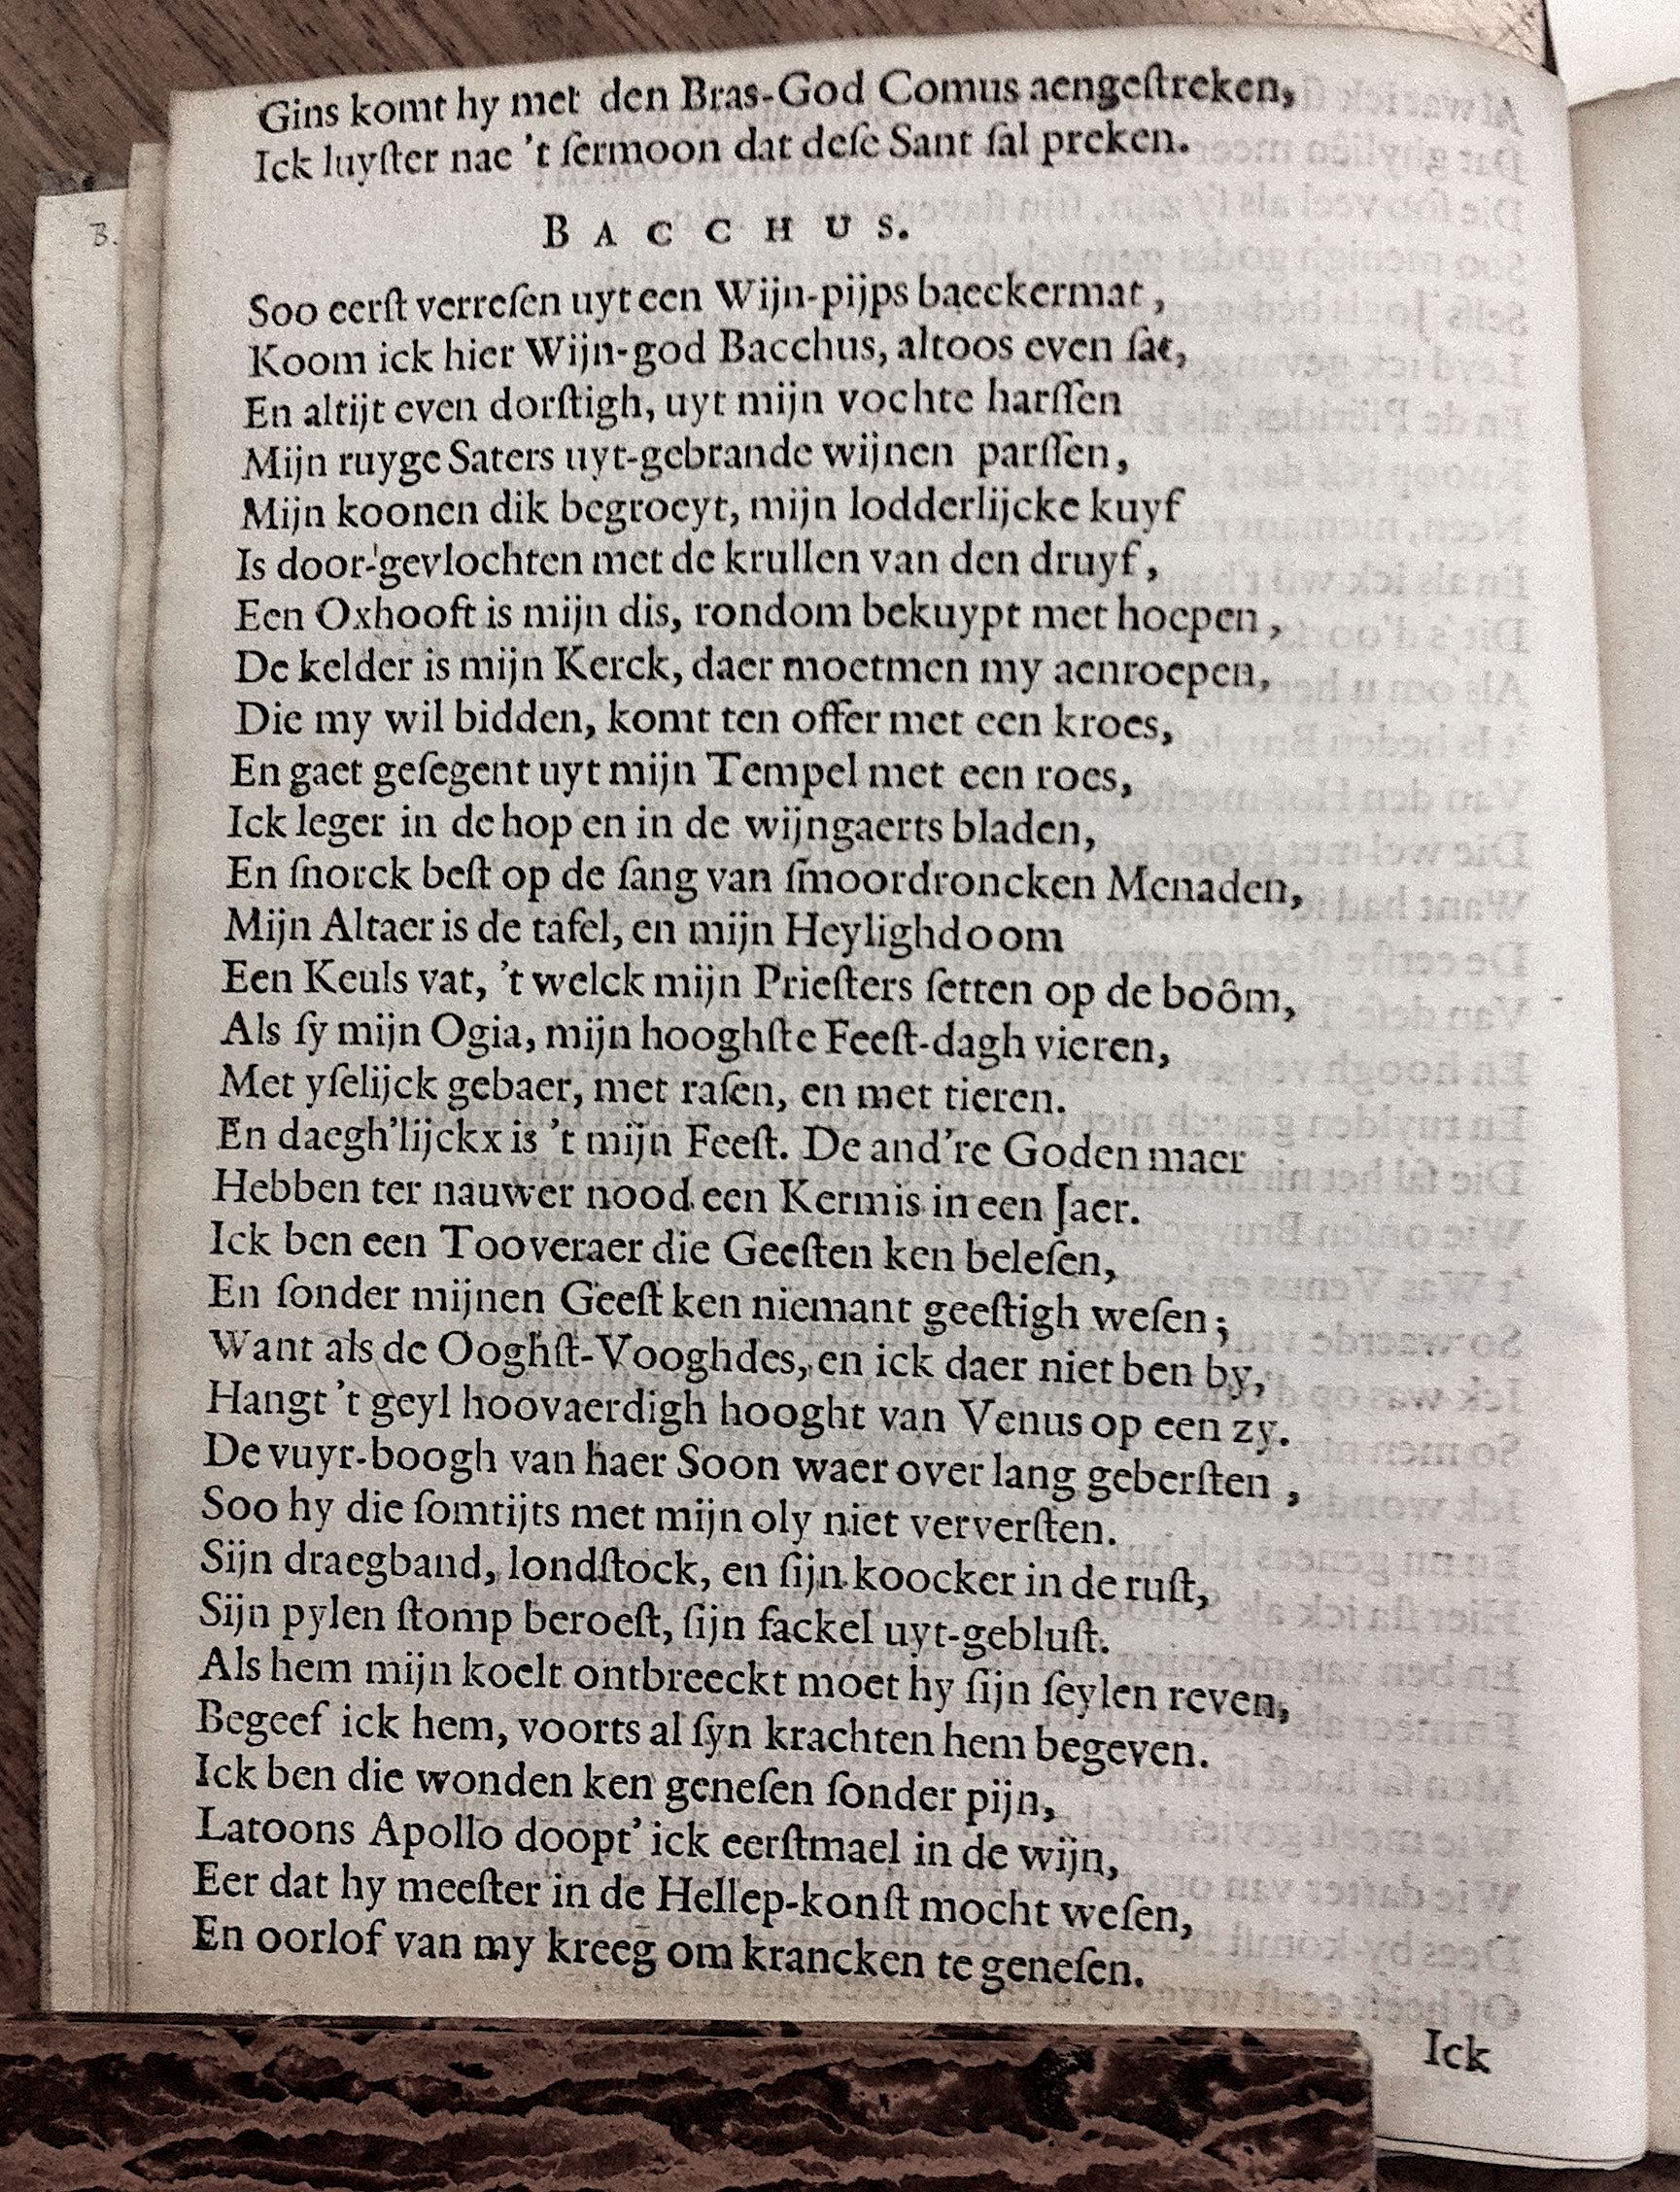 Gins komt hy met den Bras-God Comus aengeſtreken,
Ick luyſter nae 't ſermoon dat deſe Sant ſal preken.
BACCHUS.
B.
Soo eerſt verreſen uyt een Wijn-pijps baeckermat,
Koom ick hier Wijn-god Bacchus, altoos even ſat,
En altijt even dorſtigh, uyt mijn vochte harſſen
Mijn ruyge Saters uyt-gebrande wijnen parſſen,
Mijn koonen dik begroeyt, mijn lodderlijcke kuyf
Is door-gevlochten met de krullen van den druyf,
Een Oxhooft is mijn dis, rondom bekuypt met hoepen,
De kelder is mijn Kerck, daer moetmen my aenroepen,
Die my wil bidden, komt ten offer met een kroes,
En gaet geſegent uyt mijn Tempel met een roes,
Ick leger in de hop en in de wijngaerts bladen,
En ſnorck beſt op de ſang van ſmoordroncken Menaden,
Mijn Altaer is de tafel, en mijn Heylighdoom
Een Keuls vat, 't welck mijn Prieſters ſetten op de boôm,
Als ſy mijn Ogia, mijn hooghſte Feeſt-dagh vieren,
Met yſelijck gebaer, met raſen, en met tieren.
En daegh'lijckx is 't mijn Feeſt. De and're Goden maer
Hebben ter nauwer nood een Kermis in een Jaer.
Ick ben een Tooveraer die Geeſten ken beleſen,
En ſonder mijnen Geeſt ken niemant geeſtigh weſen;
Want als de Ooghſt-Vooghdes, en ick daer niet ben by,
Hangt 't geyl hoovaerdigh hooght van Venus op een zy.
De vuyr-boogh van haer Soon waer over lang geberſten,
Soo hy die ſomtijts met mijn oly niet ververſten.
Sijn draegband, londſtock, en ſijn koocker in de ruſt,
Sijn pylen ſtomp beroeſt, ſijn fackel uyt-gebluſt.
Als hem mijn koelt ontbreeckt moet hy ſijn ſeylen reven,
Begeef ick hem, voorts al ſyn krachten hem begeven.
Ick ben die wonden ken geneſen ſonder pijn,
Latoons Apollo doopt' ick eerſtmael in de wijn,
Eer dat hy meeſter in de Hellep-konſt mocht weſen,
En oorlof van my kreeg om krancken te geneſen.
Ick